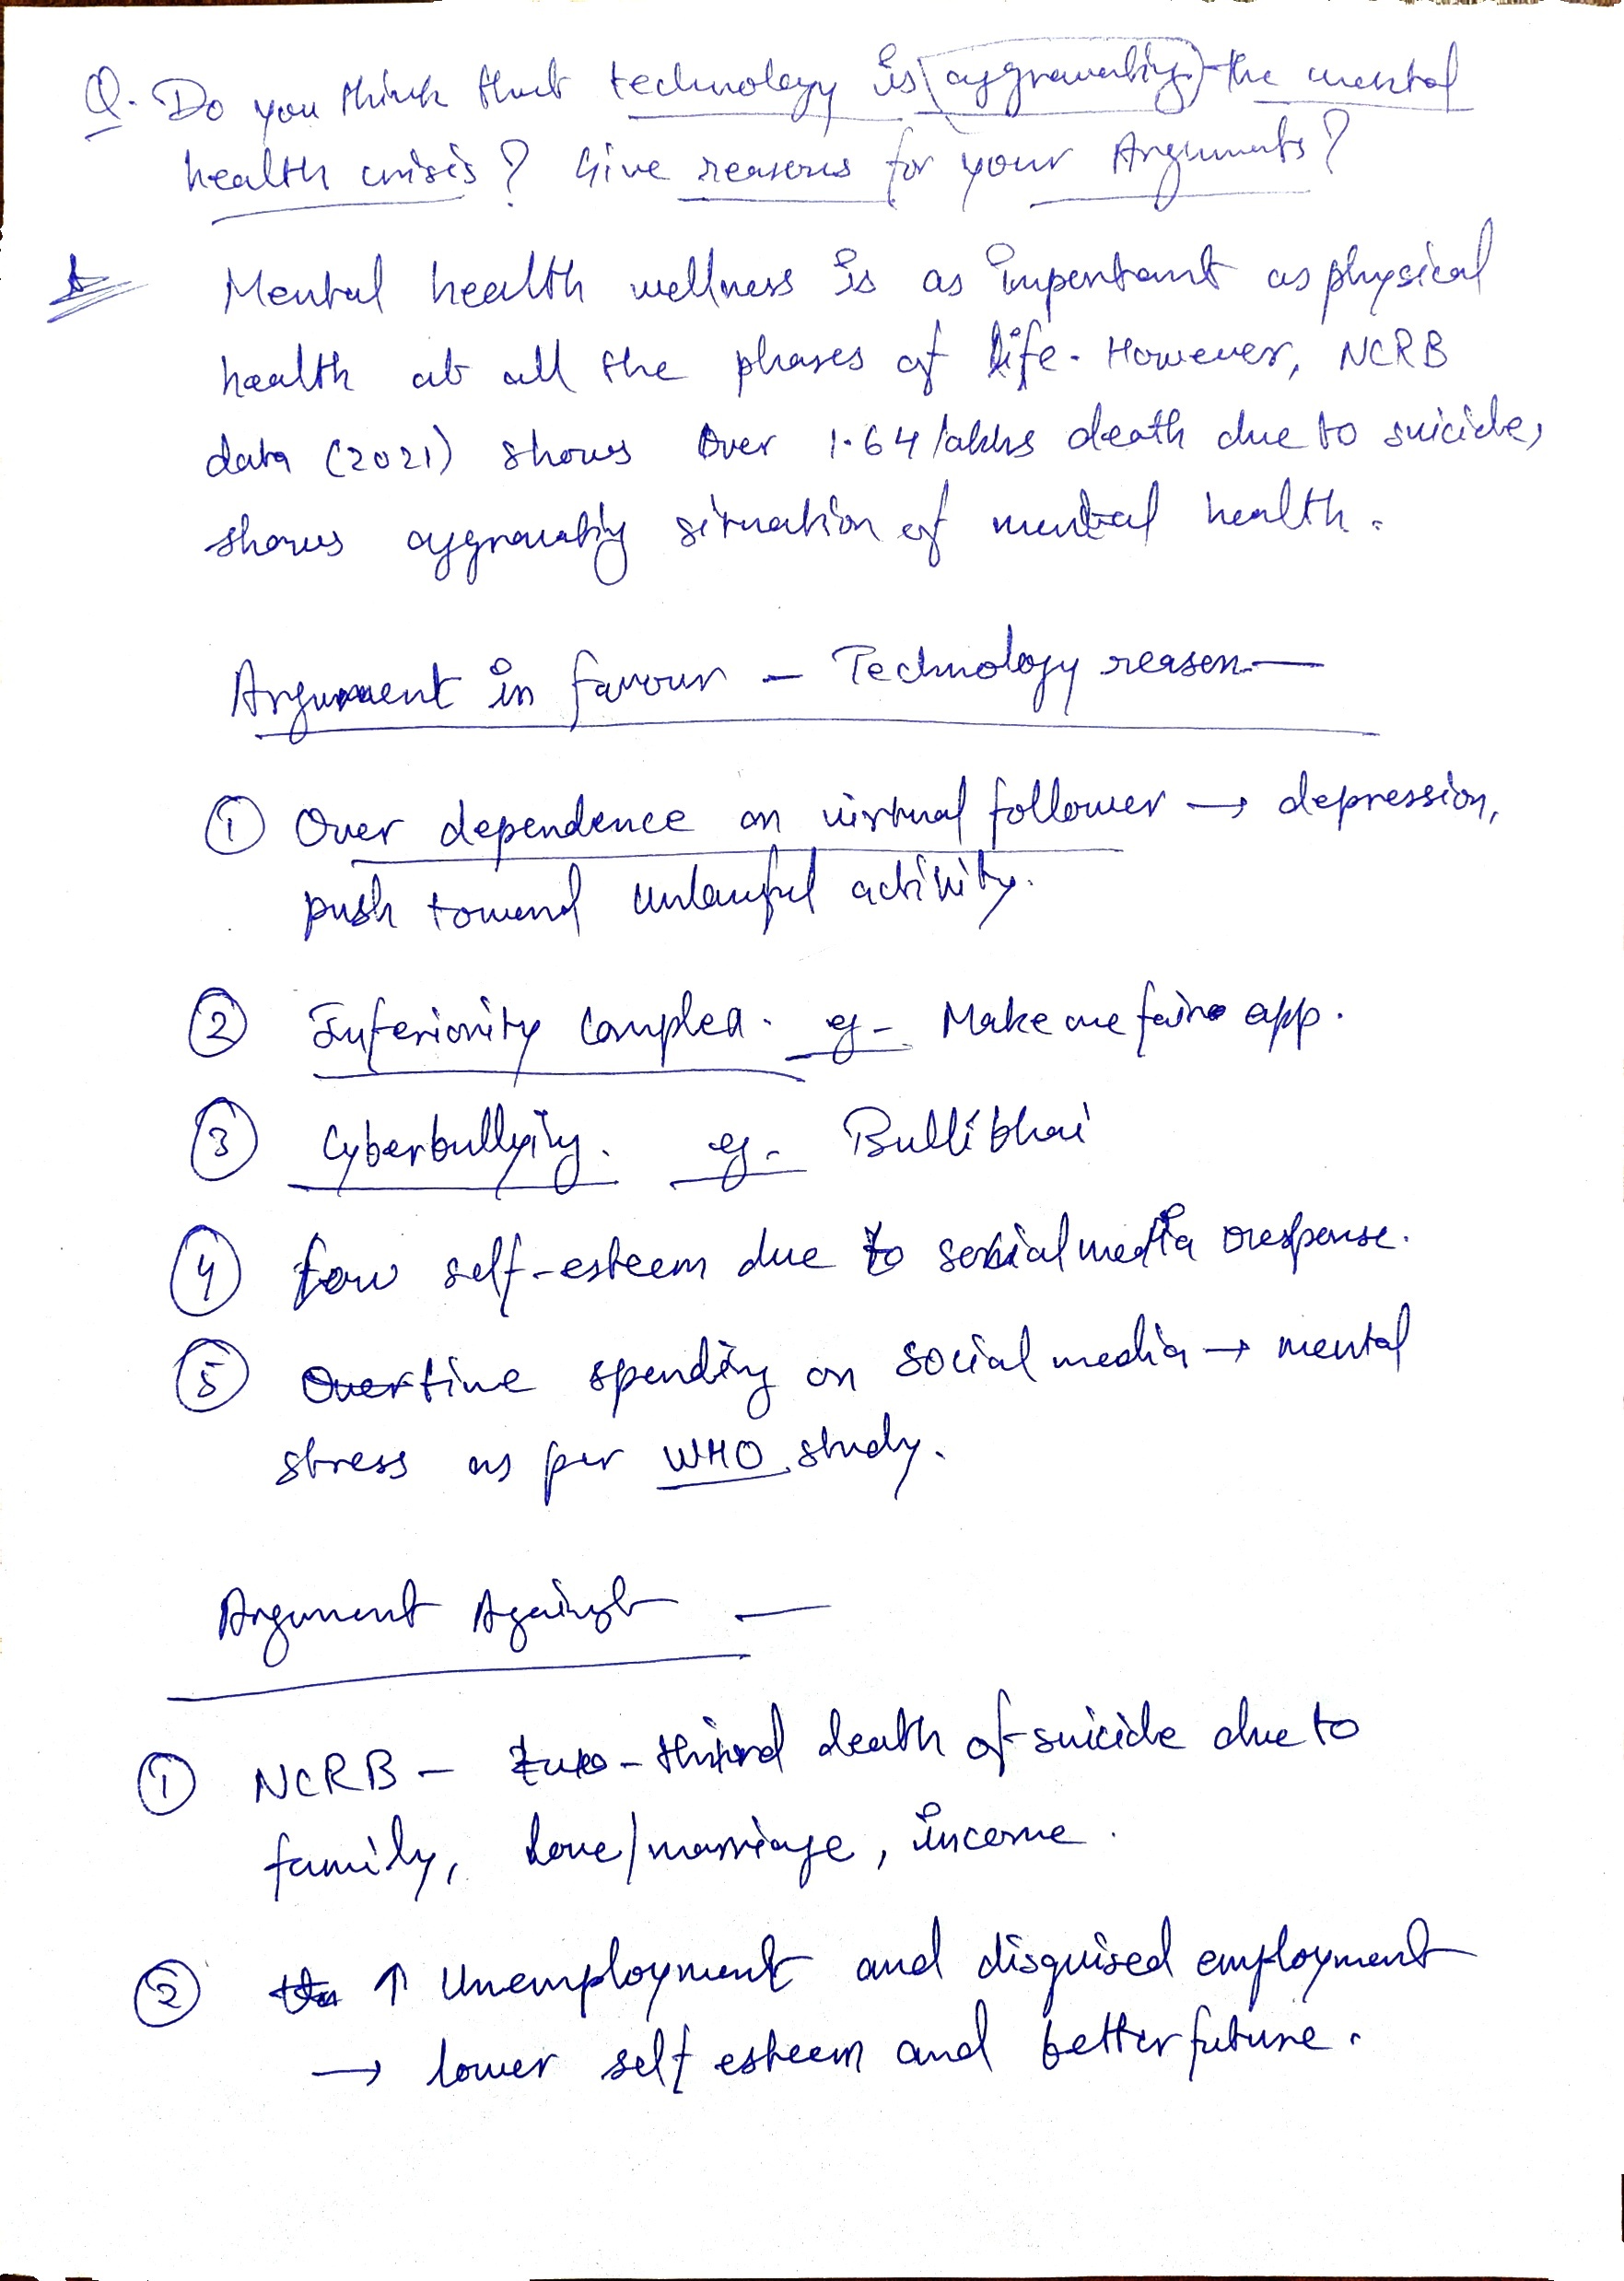 Q. Do you think that technology is (aggravating) the mental
health crisis? Give reasons for your Arguments?
Mental health wellness is as important as physical
health at all the phases of life. However, NCRB
data (2021) shows over 1.64 lakhs death due to suicide,
shows aggravating situation of mental health.
Argument in favour - Technology reason —
① Over dependence on virtual follower → depression,
push toward unlawful activity.
② Inferiority Complex. eg - Make me fair app.
③ Cyberbullying. eg. Bulli bhai
④ Low self-esteem due to social media response.
⑤ Overtime spending on social media → mental
stress as per WHO study.
Argument Against —
① NCRB - two-third death of suicide due to
family, love/marriage, income.
② ↑ Unemployment and disguised employment
→ lower self esteem and better future.